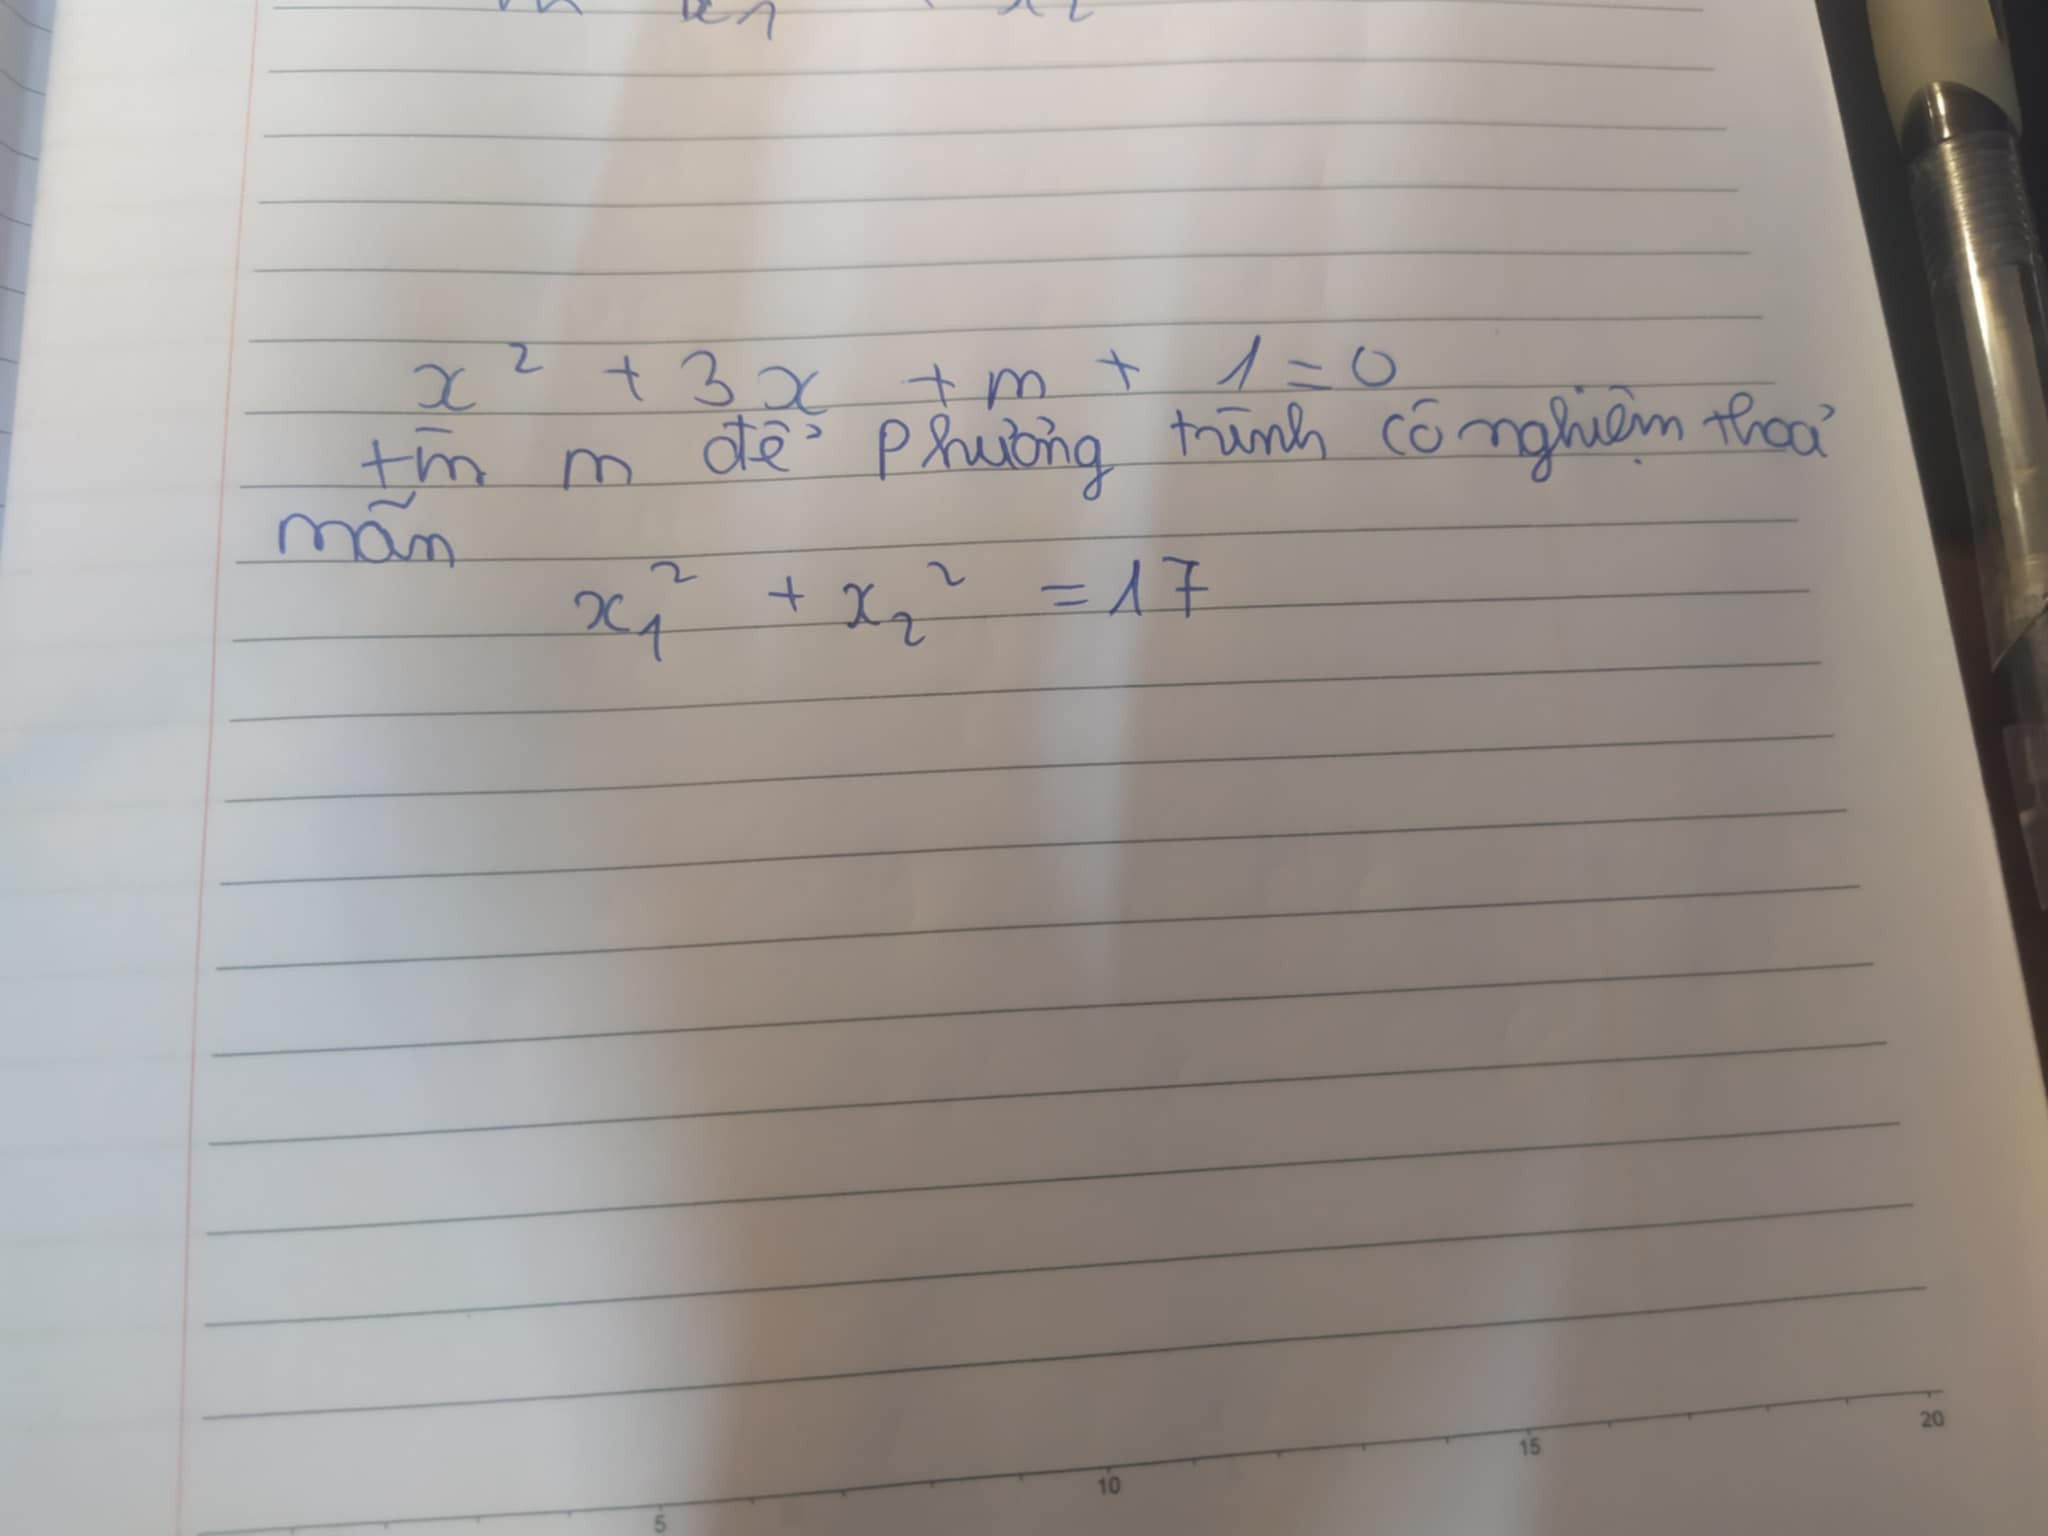 x² + 3x + m + 1 = 0
tìm m để phương trình có nghiệm thoả
mãn
x₁² + x₂² = 17
5 10 15 20